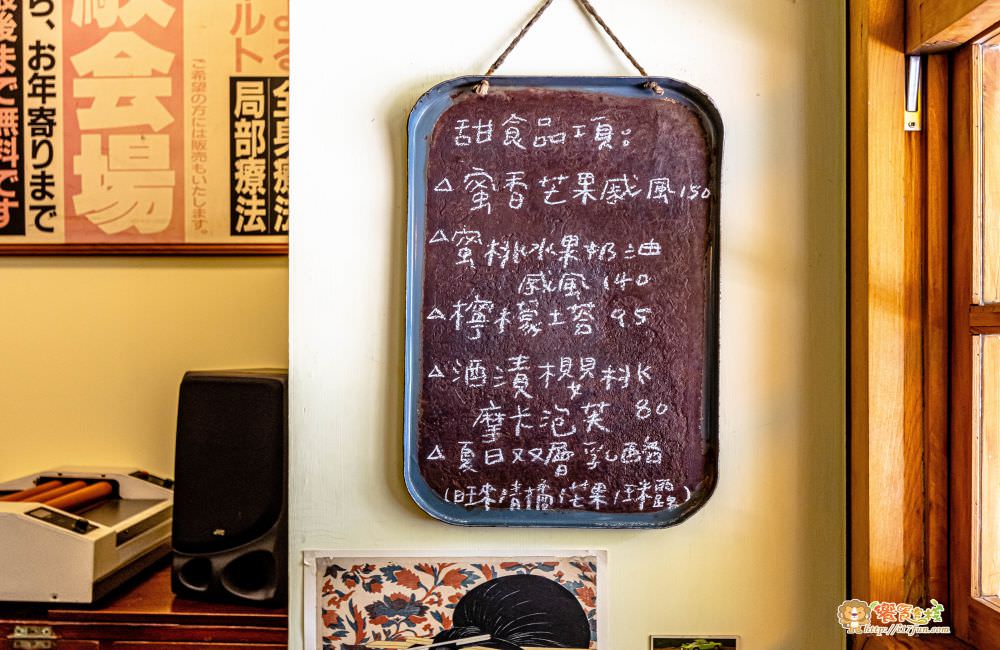 甜食品項。
△蜜香芒果戚風150
△蜜桃水果奶油
戚風 140
△檸檬塔 95
△酒漬櫻桃
摩卡泡芙 80
△夏日双層乳酪
最後まで無料です
ら、お年寄りまで
会場
ご希望の方には販売もいたします。
よる
ルト
全身療法
局部療法
http://i17fun.com/